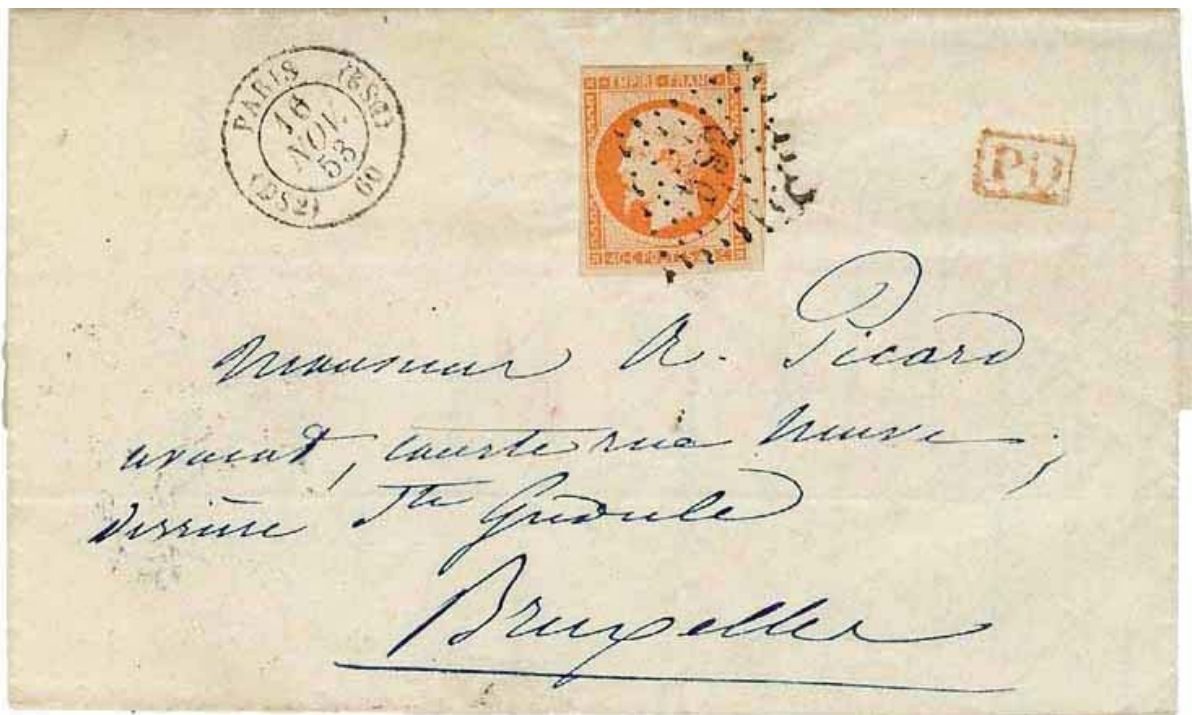 PARIS (DS2)
16
NOV.
53
(DS2) 60
EMPIRE FRANC
40 C POSTES 40 C
DS2
PD
Monsieur A. Picard
avocat, courte rue neuve,
derrière Ste Gudule
Bruxelles